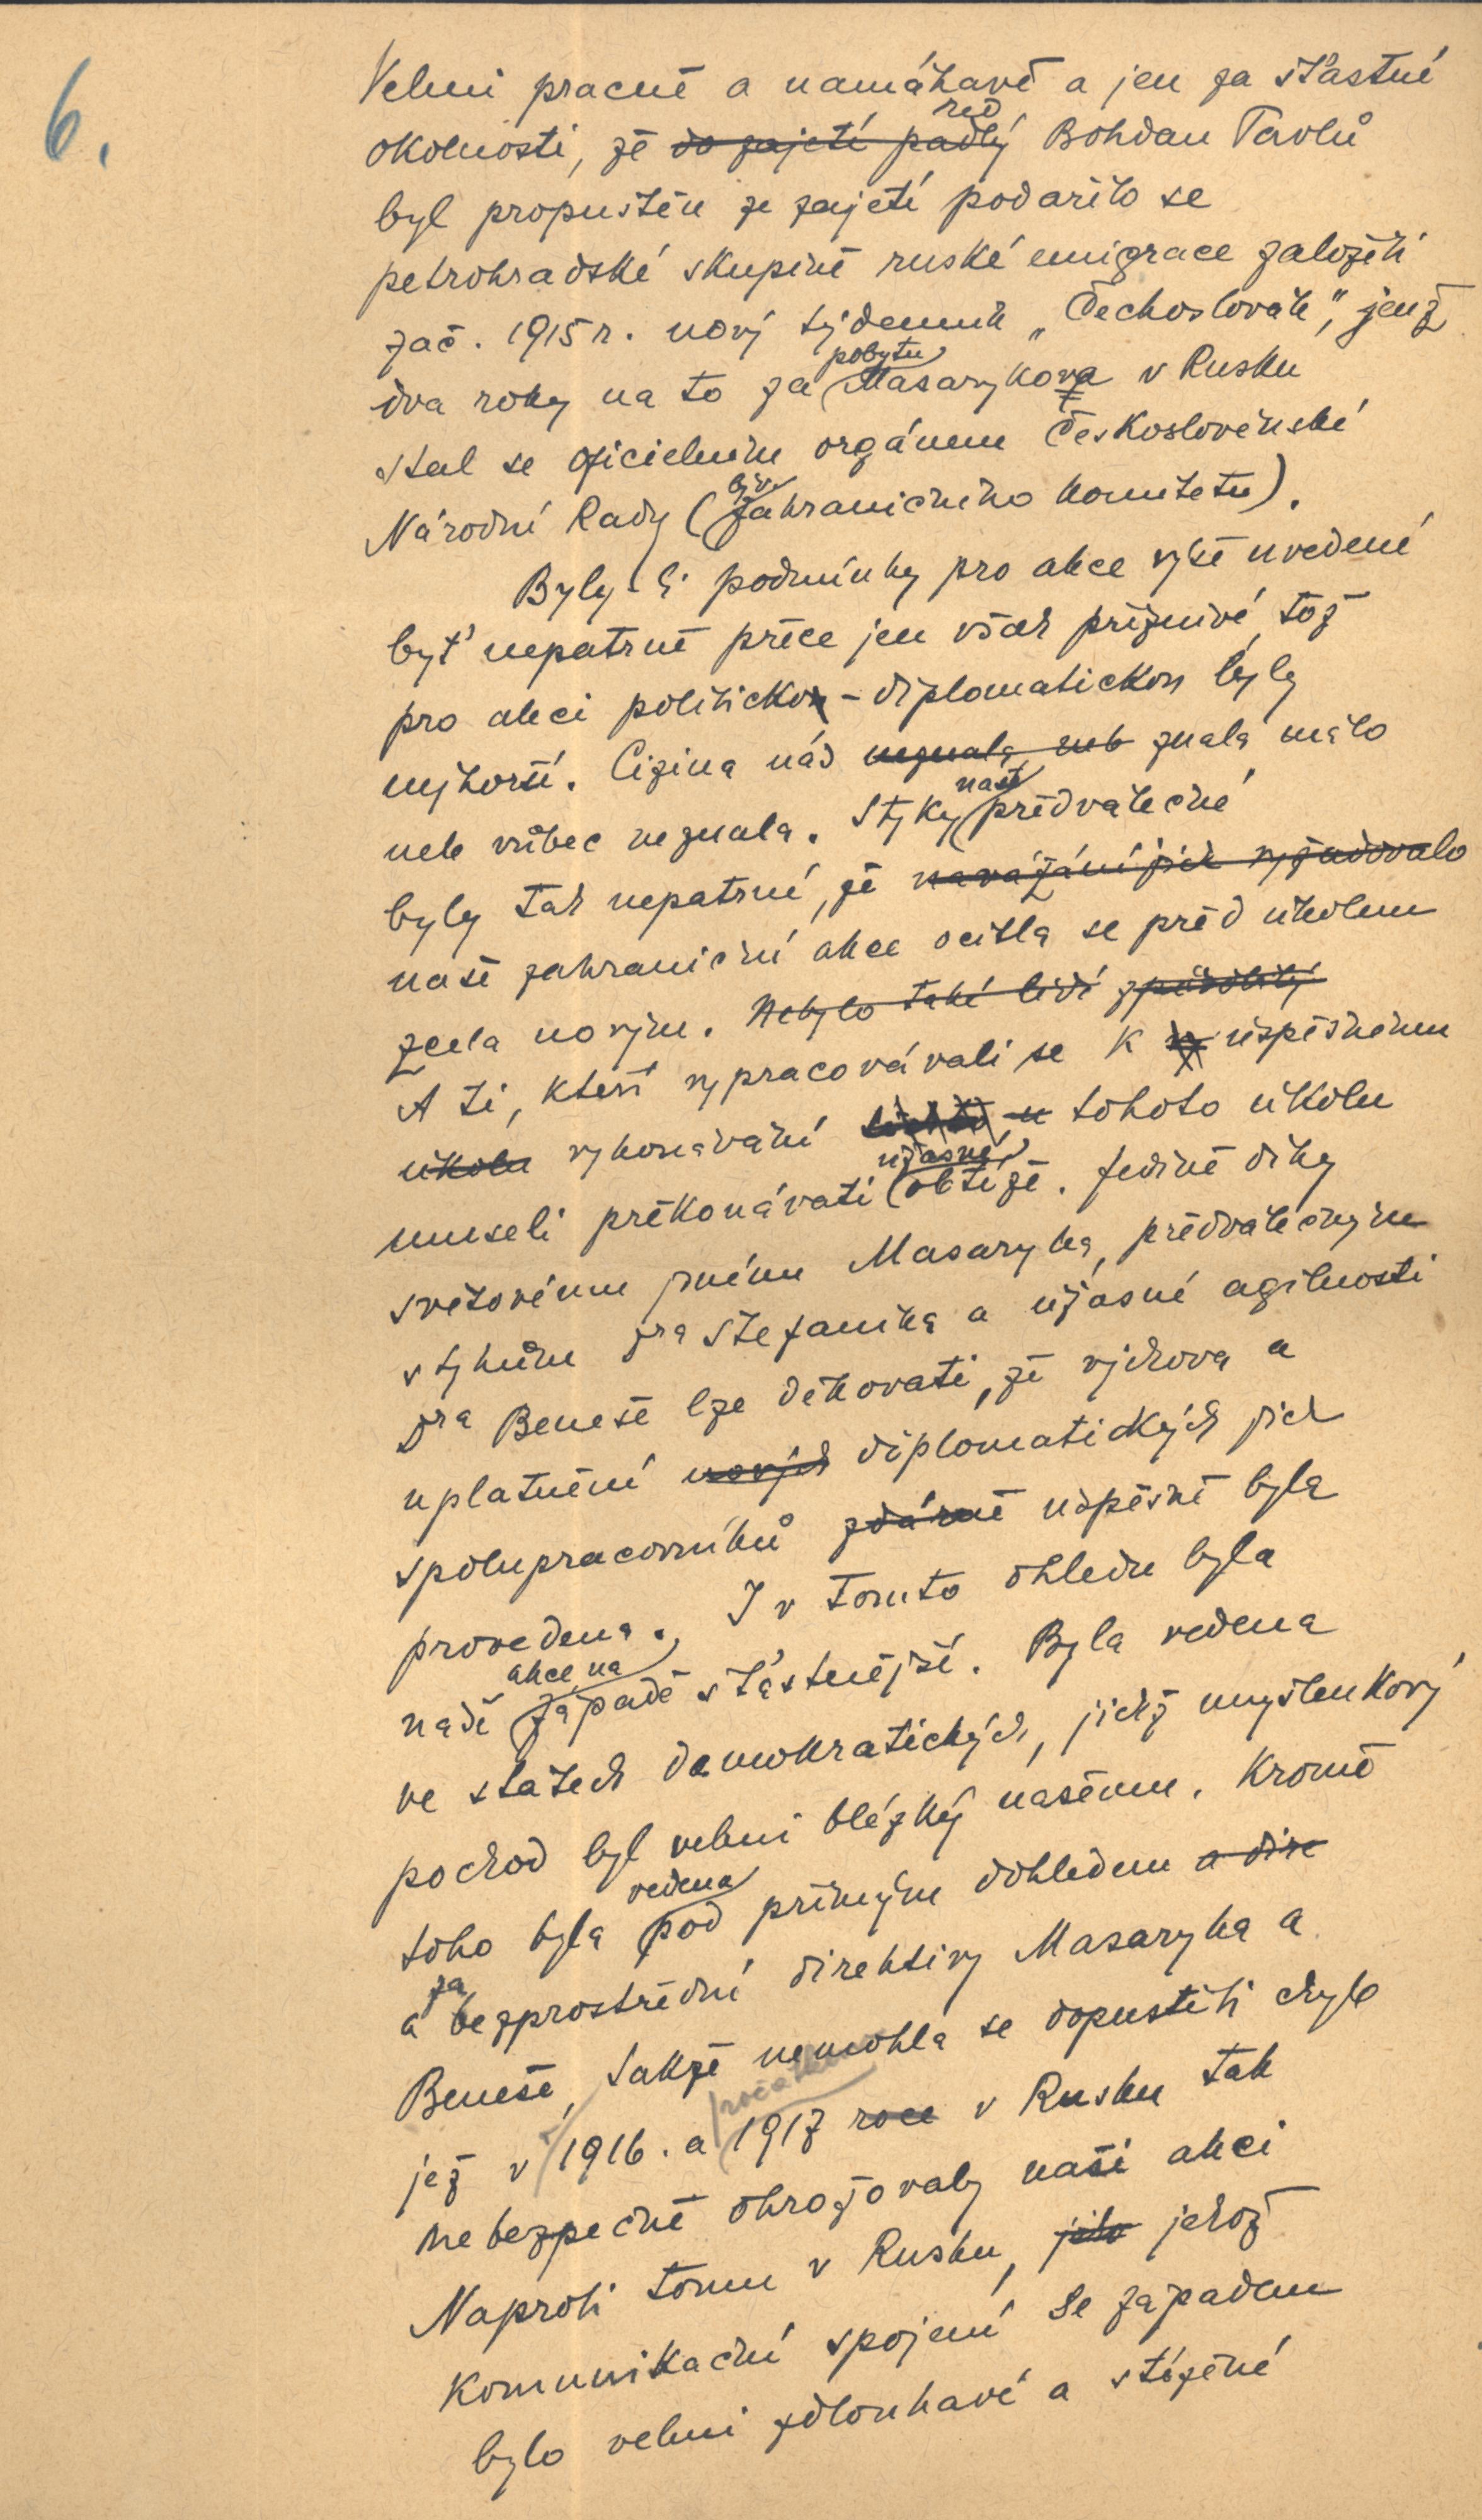 6.
Velmi pracně a namáhavě a jen za šťastné
red
okolnosti, že do zajetí padlý Bohdan Pavlů
byl propuštěn ze zajetí podařilo se
petrohradské skupině ruské emigrace založiti
zač. 1915 r. nový týdenník „Čechoslovák", jenž
pobytu
dva roky na to za Masarykova v Rusku
stal se oficielním orgánem Československé
býv.
Národní Rady (zahraničního komitetu).
Byly-li podmínky pro akce výše uvedené
byť nepatrně přece jen však příznivé, tož
pro akci politickou - diplomatickou byly
nejhorší. Cizina nás neznala, neb znala málo
naše
neb vůbec neznala. Styky předválečné
byly tak nepatrné, že navázání jich vyžadovalo
naše zahraniční akce ocitla se před úkolem
zcela novým. Nebylo také lidí způsobilý
A ti, kteří vypracovávali se k úspěšnému
úkolu vykonávání tohoto úkolu
úžasné
museli překonávati obtíže. Jedině díky
světovému jménu Masaryka, předválečným
stykům Dra Štefanika a úžasné agilnosti
Dra Beneše lze děkovati, že výchova a
uplatnění nových diplomatických jich
spolupracovníků zdárně úspěšně byla
provedena. I v tomto ohledu byla
akce na
naše západě šťastnější. Byla vedena
ve státech demokratických, jichž myšlenkový
pochod byl velmi blízký našemu. Kromě
vedena
toho byla pod přímým dohledem a dire
za
a bezprostřední direktivy Masaryka a
Beneše, takže nemohla se dopustiti chyb
počátkem
jež v 1916. a 1917 roce v Rusku tak
nebezpečně ohrožovaly naši akci
Naproti tomu v Rusku, jeho jehož
komunikační spojení se západem
bylo velmi zdlouhavé a stížené